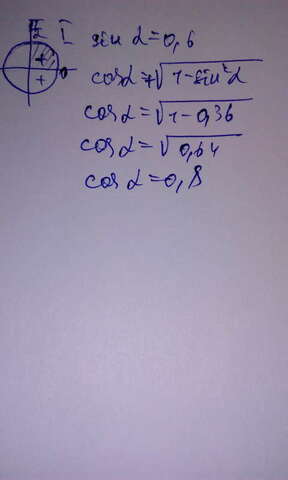 π/2 I sin α = 0,6
+ 0 cos α = +√(1 - sin² α)
+ cos α = √(1 - 0,36)
cos α = √(0,64)
cos α = 0,8